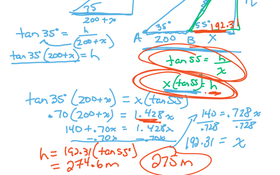 75
200+x
tan35° = h/(200+x)
tan35°(200+x) = h
35°
55°
192.3
A
200
B
x
tan55 = h/x
x(tan55) = h
tan35°(200+x) = x(tan55°)
.70(200+x) = 1.428x
140+.70x = 1.428x
-.70x -.70x
140 = .728x
.728 .728
192.31 = x
h = 192.31(tan55°)
= 274.6m
275m